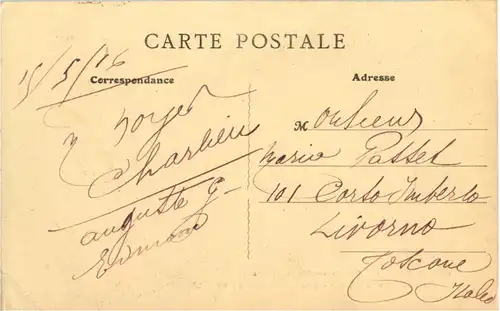 CARTE POSTALE
15/5/16
Correspondance
Adresse
Charlieu
auguste G-
Edmond
Monsieur
Passet
101 Corso Umberto
Livorno
Toscane
Italie